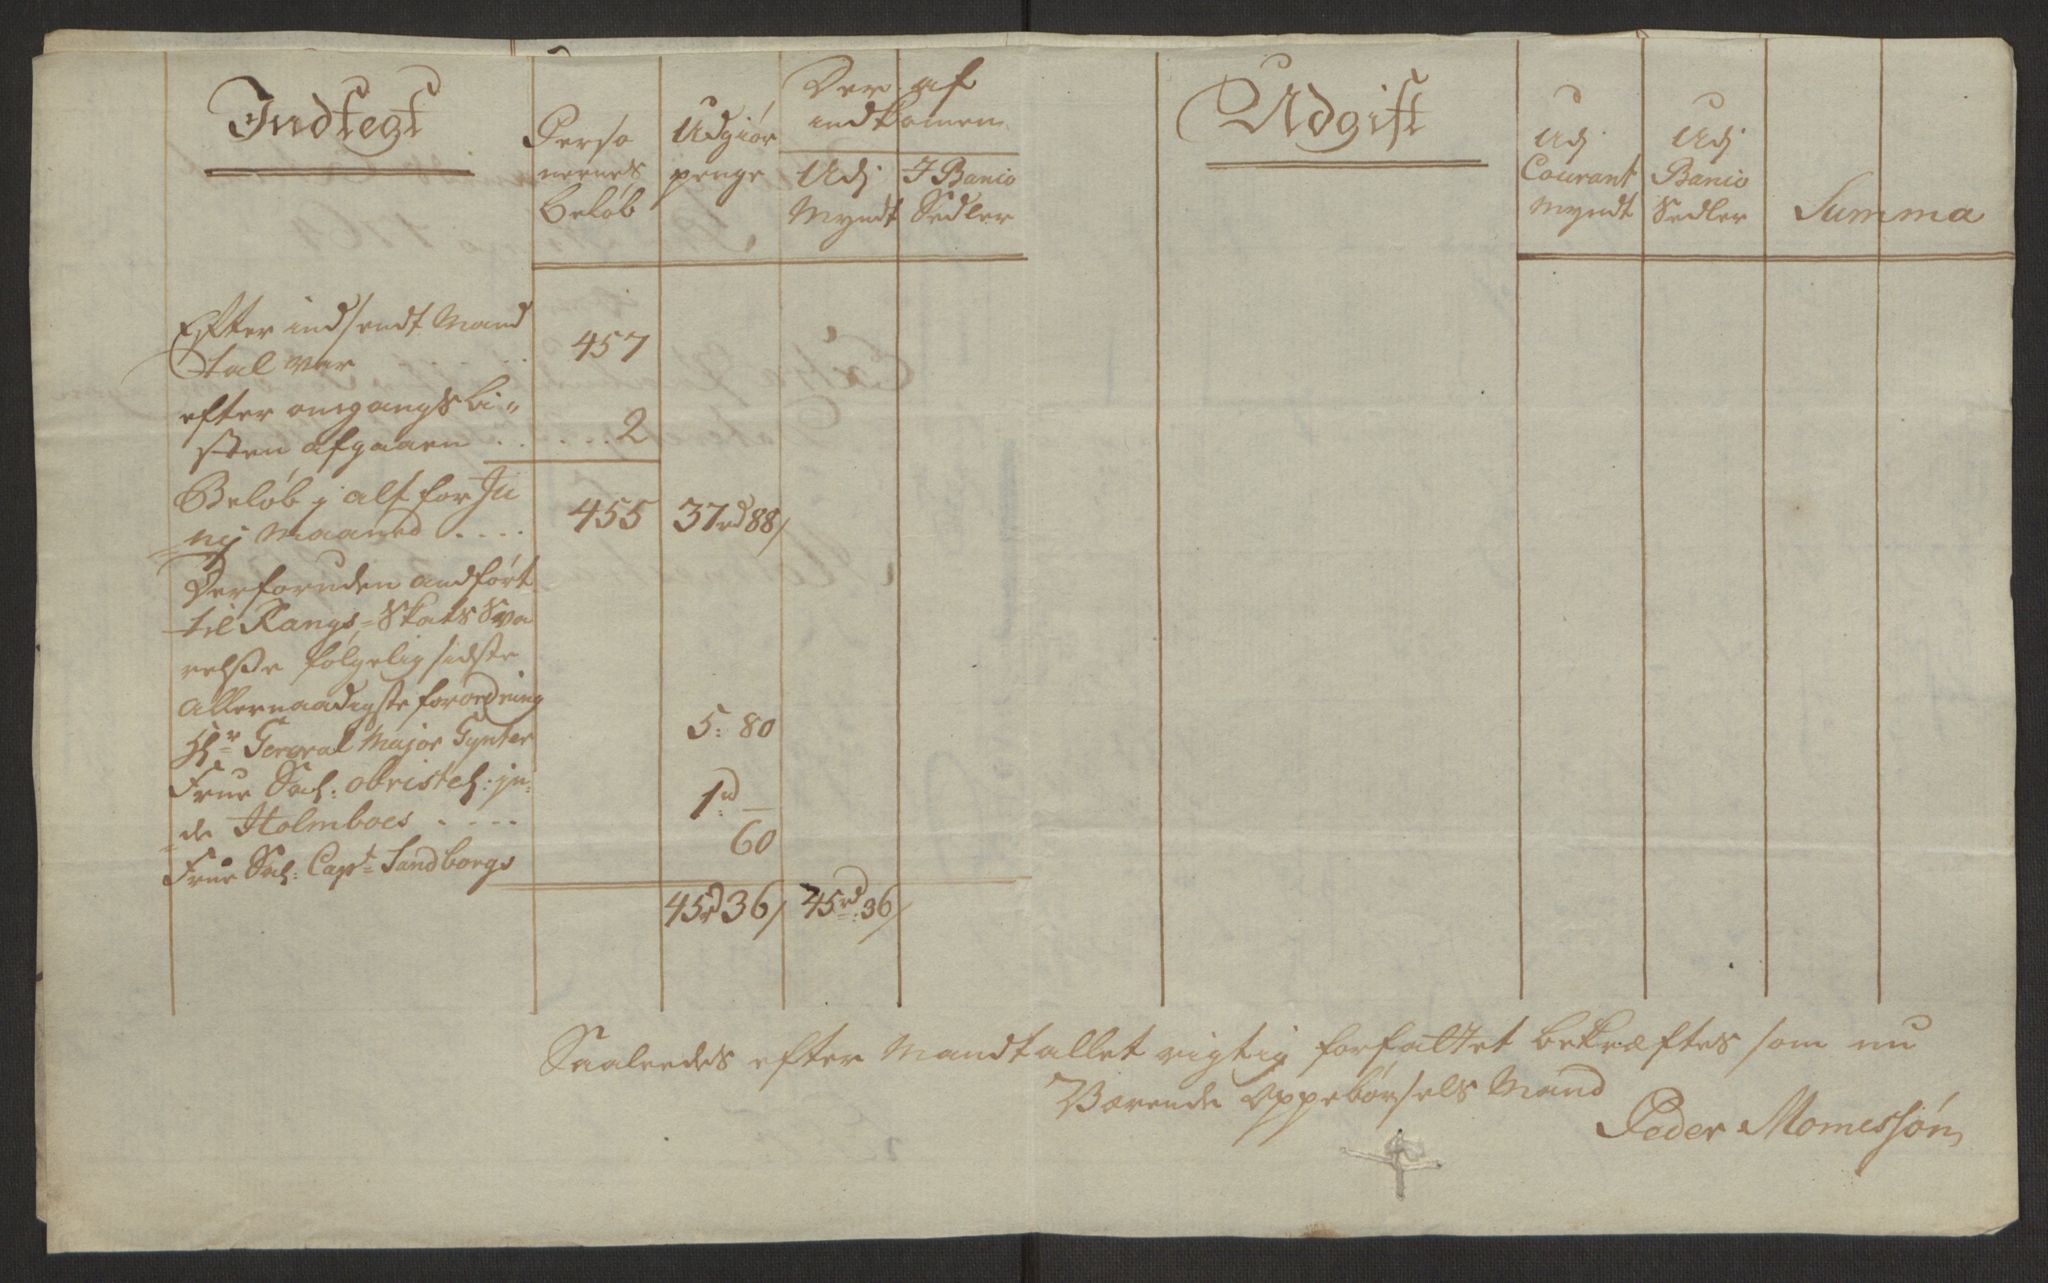 Indtegt
Perso
nernes
Beløb
Udgiør
penge
Der af
indkomen
Udj
Myndt
I Banco
Sedler
Udgift
Udj
Courant
Myndt
Udj
Banco
Sedler
Summa
Efter indsendt Mand
tal var . . . 457
efter omgangs Li„
sten afgaaen . . . . . 2
Beløb j alt for Ju
nij Maaned . . . . 455 37rd 88/
Derforuden andført
til Rangs=Skats Sva
relse følgelig sidste
allernaadigste forordning
Hr General Major Gynter 5: 80
Frue Sal: obristel: jn:
de Holmboes . . . . 1rd —
Frue Sal: Capt= Sandborgs 60
45rd 36/ 45rd: 36/
Saaleedes efter Mandtallet rigtig forfattet bekræftes som nu
Værende Oppebørsels Mand
Peder Momessøn